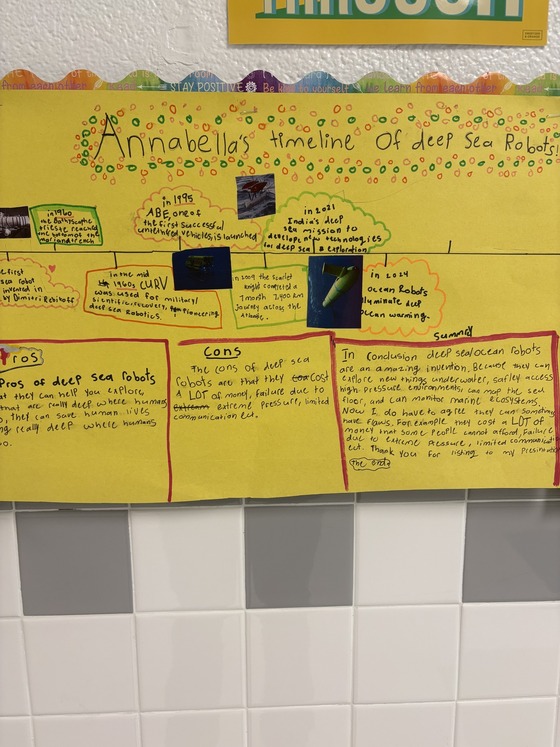 STAY POSITIVE Be yourself learn from
Annabella's timeline Of deep Sea Robots!
in 1960
the Bathyscaphe
trieste reached
the bottom of the
in 1995
ABE, one of
the first successful
untethered vehicles is launched
in 2021
India's deep
sea mission to
develope new technologies
for deep sea & exploration
first
sea robot
invented in
by Dimitri Rebikoff
in the mid
1960s CURV
was used for military/
scientific recovery, pioneering
deep sea Robotics.
in 2009 the scarlet
knight completed a
7 month 7,400 km
journey across the
Atlantic.
in 2024
ocean Robots
lluminate deep
ocean warming.
Pros
Pros of deep sea robots
at they can help you explore
that are really deep where humans
, they can save human lives
ng really deep where humans
o.
Cons
The cons of deep sea
robots are that they cost
A LOT of money, failure due to
extreme pressure, limited
communication ect.
Summry
In conclusion deep sea/ocean robots
are an amazing invention. Because they can
explore new things underwater, safley access
high-Pressure environments, can map the sea
floor, and can monitor marine ecosystems.
Now I do have to agree they can
have flaws. For example they cost a LOT of
money that some people cannot afford, failure
due to extreme pressure, limited
ect. Thank you for listing to my
The end